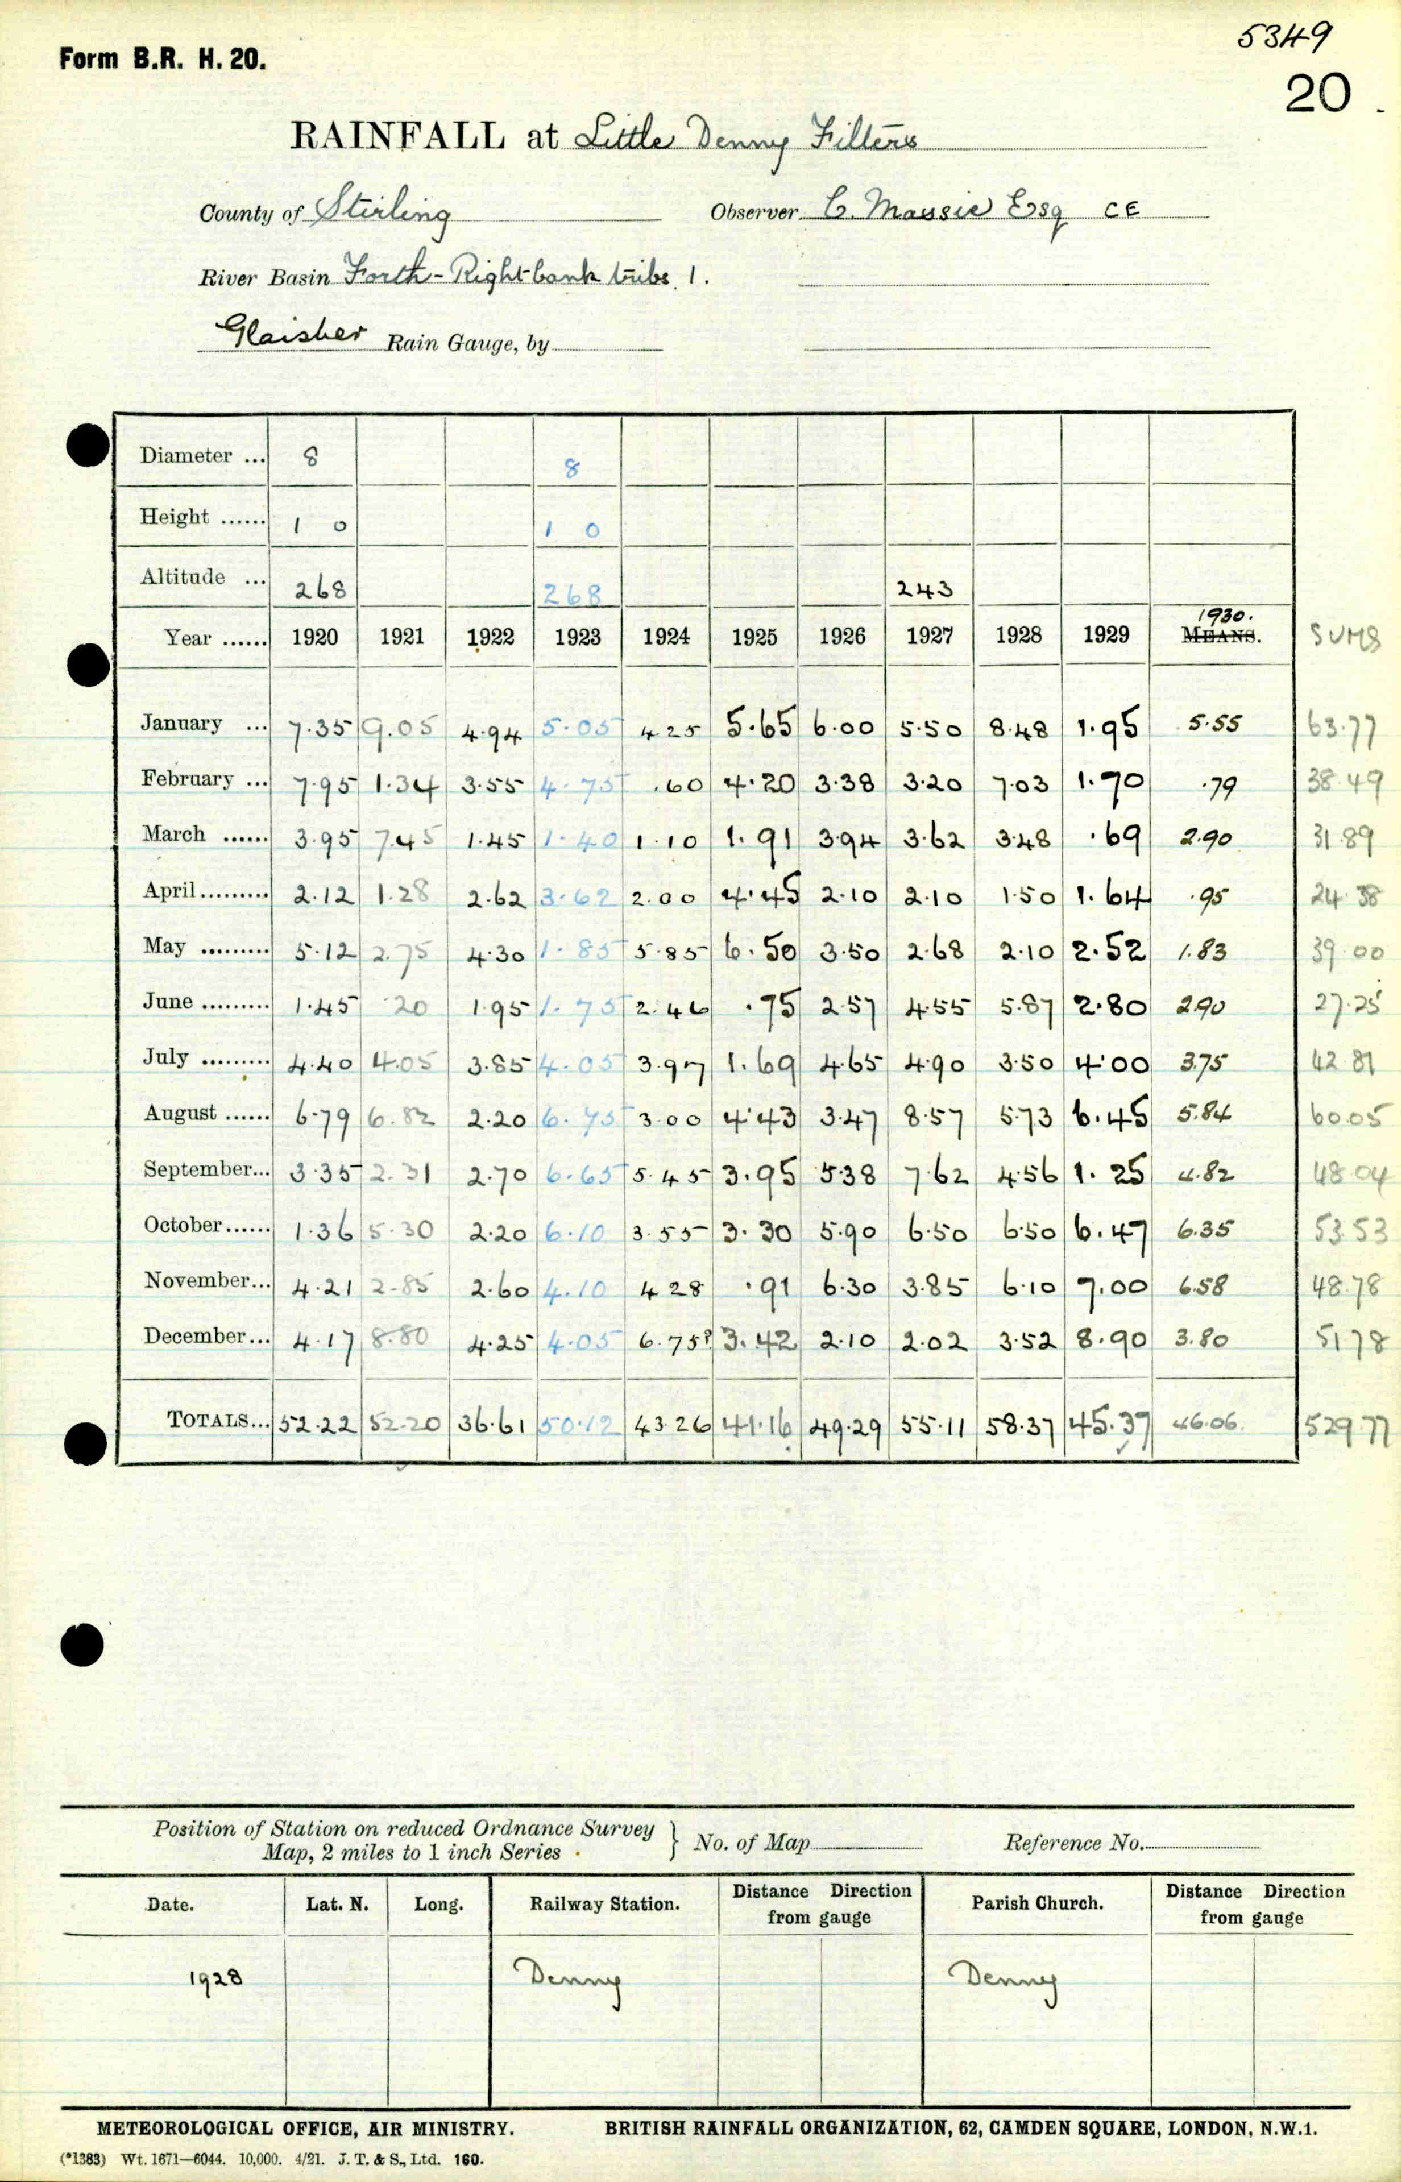 5349
Form B.R. H. 20.
20
RAINFALL at Little Denny Filters
County of Stirling Observer C. Massie Esq CE
River Basin Forth - Right bank tribs. 1.
Glaisher Rain Gauge, by
Diameter ... 8 8
Height ...... 1 0 1 0
Altitude ... 268 268 243
1930.
Year ...... 1920 1921 1922 1923 1924 1925 1926 1927 1928 1929 MEANS. SUMS
January ... 7.35 9.05 4.94 5.05 4.25 5.65 6.00 5.50 8.48 1.95 5.55 63.77
February ... 7.95 1.34 3.55 4.75 .60 4.20 3.38 3.20 7.03 1.70 .79 38.49
March ...... 3.95 7.45 1.45 1.40 1.10 1.91 3.94 3.62 3.48 .69 2.90 31.89
April......... 2.12 1.28 2.62 3.62 2.00 4.45 2.10 2.10 1.50 1.64 .95 24.38
May ......... 5.12 2.75 4.30 1.85 5.85 6.50 3.50 2.68 2.10 2.52 1.83 39.00
June ......... 1.45 .20 1.95 1.75 2.46 .75 2.57 4.55 5.87 2.80 2.90 27.25
July ......... 4.40 4.05 3.85 4.05 3.97 1.69 4.65 4.90 3.50 4.00 3.75 42.81
August ...... 6.79 6.82 2.20 6.75 3.00 4.43 3.47 8.57 5.73 6.45 5.84 60.05
September... 3.35 2.31 2.70 6.65 5.45 3.95 5.38 7.62 4.56 1.25 4.82 48.04
October...... 1.36 5.30 2.20 6.10 3.55 3.30 5.90 6.50 6.50 6.47 6.35 53.53
November... 4.21 2.85 2.60 4.10 4.28 .91 6.30 3.85 6.10 7.00 6.58 48.78
December... 4.17 8.80 4.25 4.05 6.75? 3.42 2.10 2.02 3.52 8.90 3.80 51.78
TOTALS... 52.22 52.20 36.61 50.12 43.26 41.16 49.29 55.11 58.37 45.37 46.06 529.77
Position of Station on reduced Ordnance Survey
Map, 2 miles to 1 inch Series } No. of Map Reference No.
Date. Lat. N. Long. Railway Station. Distance Direction from gauge Parish Church. Distance Direction from gauge
1928 Denny Denny
METEOROLOGICAL OFFICE, AIR MINISTRY. BRITISH RAINFALL ORGANIZATION, 62, CAMDEN SQUARE, LONDON, N.W.1.
(*1383) Wt. 1671—6044. 10,000. 4/21. J. T. & S., Ltd. 160.